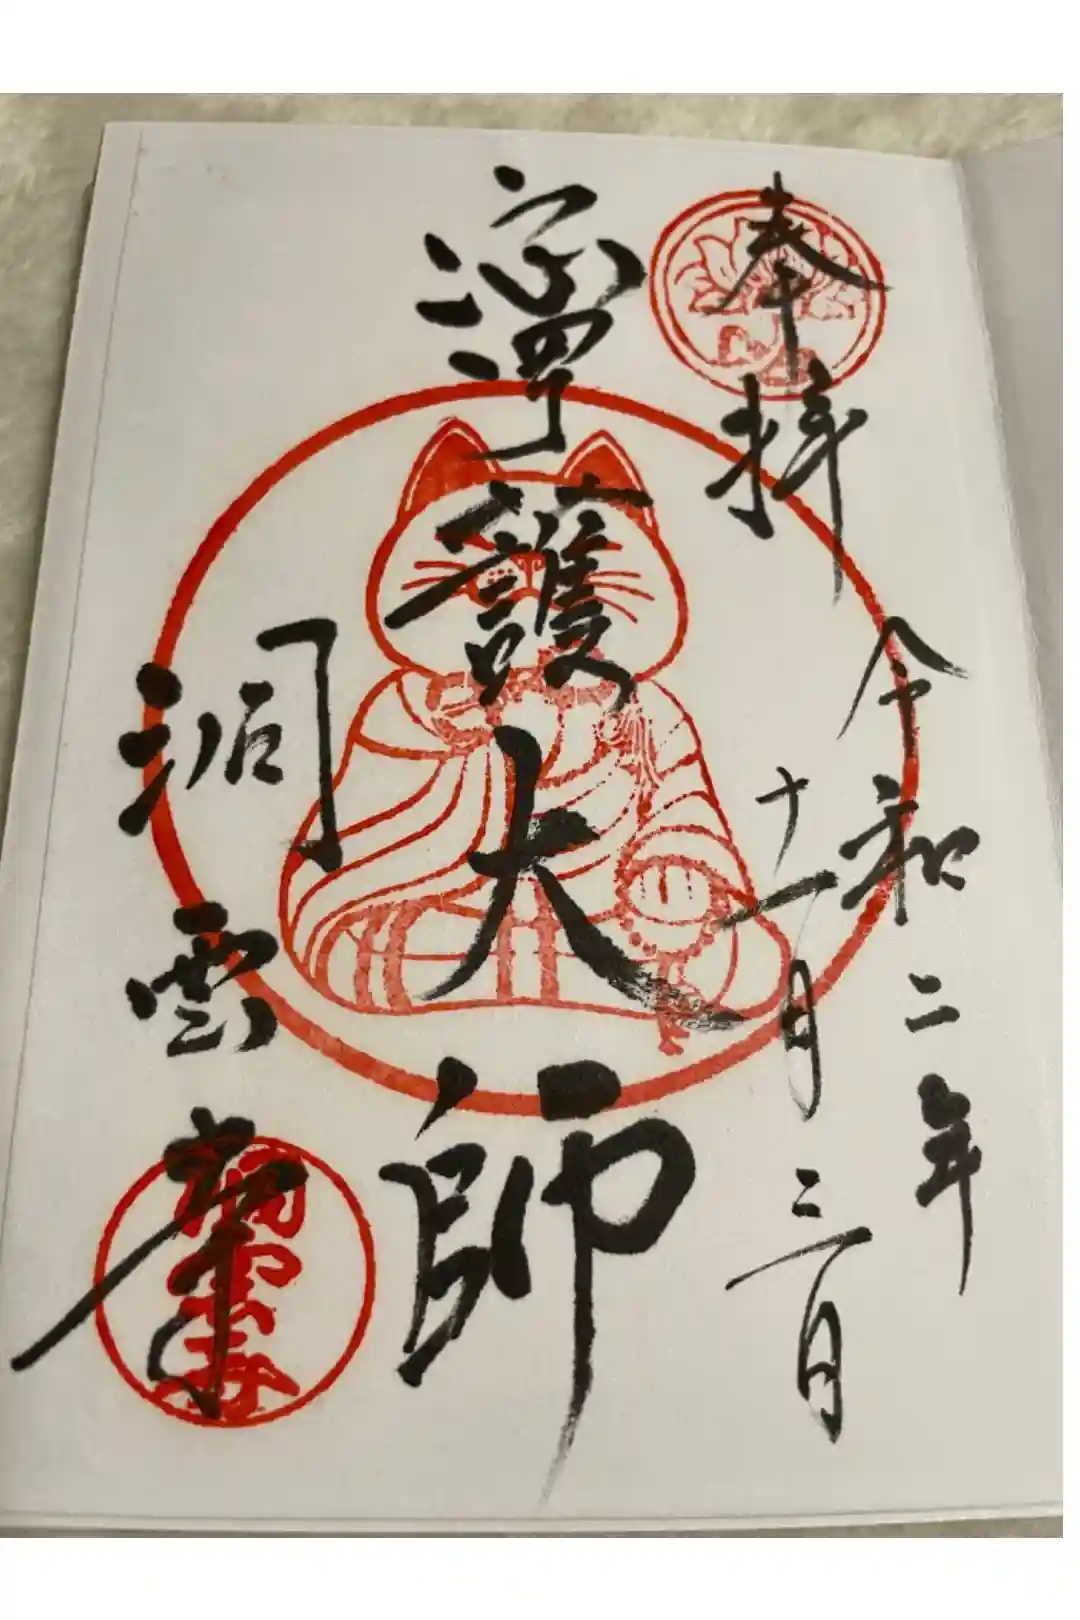 奉拝
令和二年
十一月三日
寧護大師
洞雲寺
洞雲寺